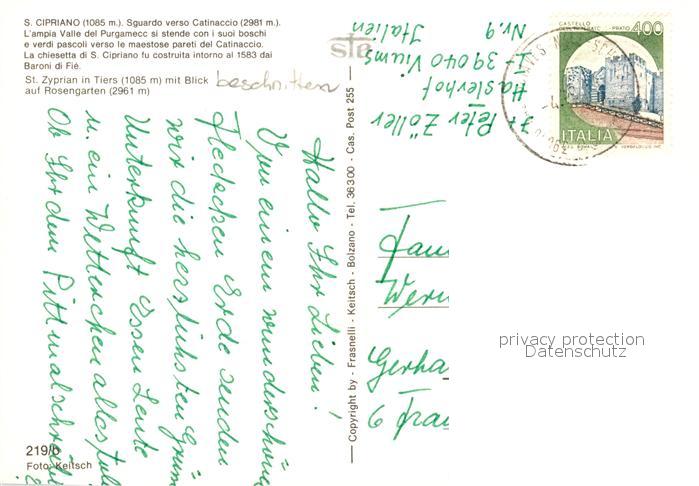 S. CIPRIANO (1085 m.). Sguardo verso Catinaccio (2981 m.).
L'ampia Valle del Purgamecc si stende con i suoi boschi
e verdi pascoli verso le maestose pareti del Catinaccio.
La chiesetta di S. Cipriano fu costruita intorno al 1583 dai
Baroni di Fié.
St. Zyprian in Tiers (1085 m) mit Blick
auf Rosengarten (2961 m)
beschnitten
Hallo Ihr Lieben!
Von einem wunderschönen
Fleckchen Erde senden
wir die herzlichsten Grüße
Unterkunft Essen Leute
u. ein Wetterchen alles
Ob Ihr dem
219/b
Foto: Keitsch
Copyright by - Frasnelli - Keitsch - Bolzano - Tel. 36300 - Cas. Post 255
sta
Peter Zöller
Haslerhof
I-39040 Viums
Nr. 9
Italien
CASTELLO
PRATO
400
ITALIA
Fam
Wern
Gerha
6 Fran
privacy protection
Datenschutz